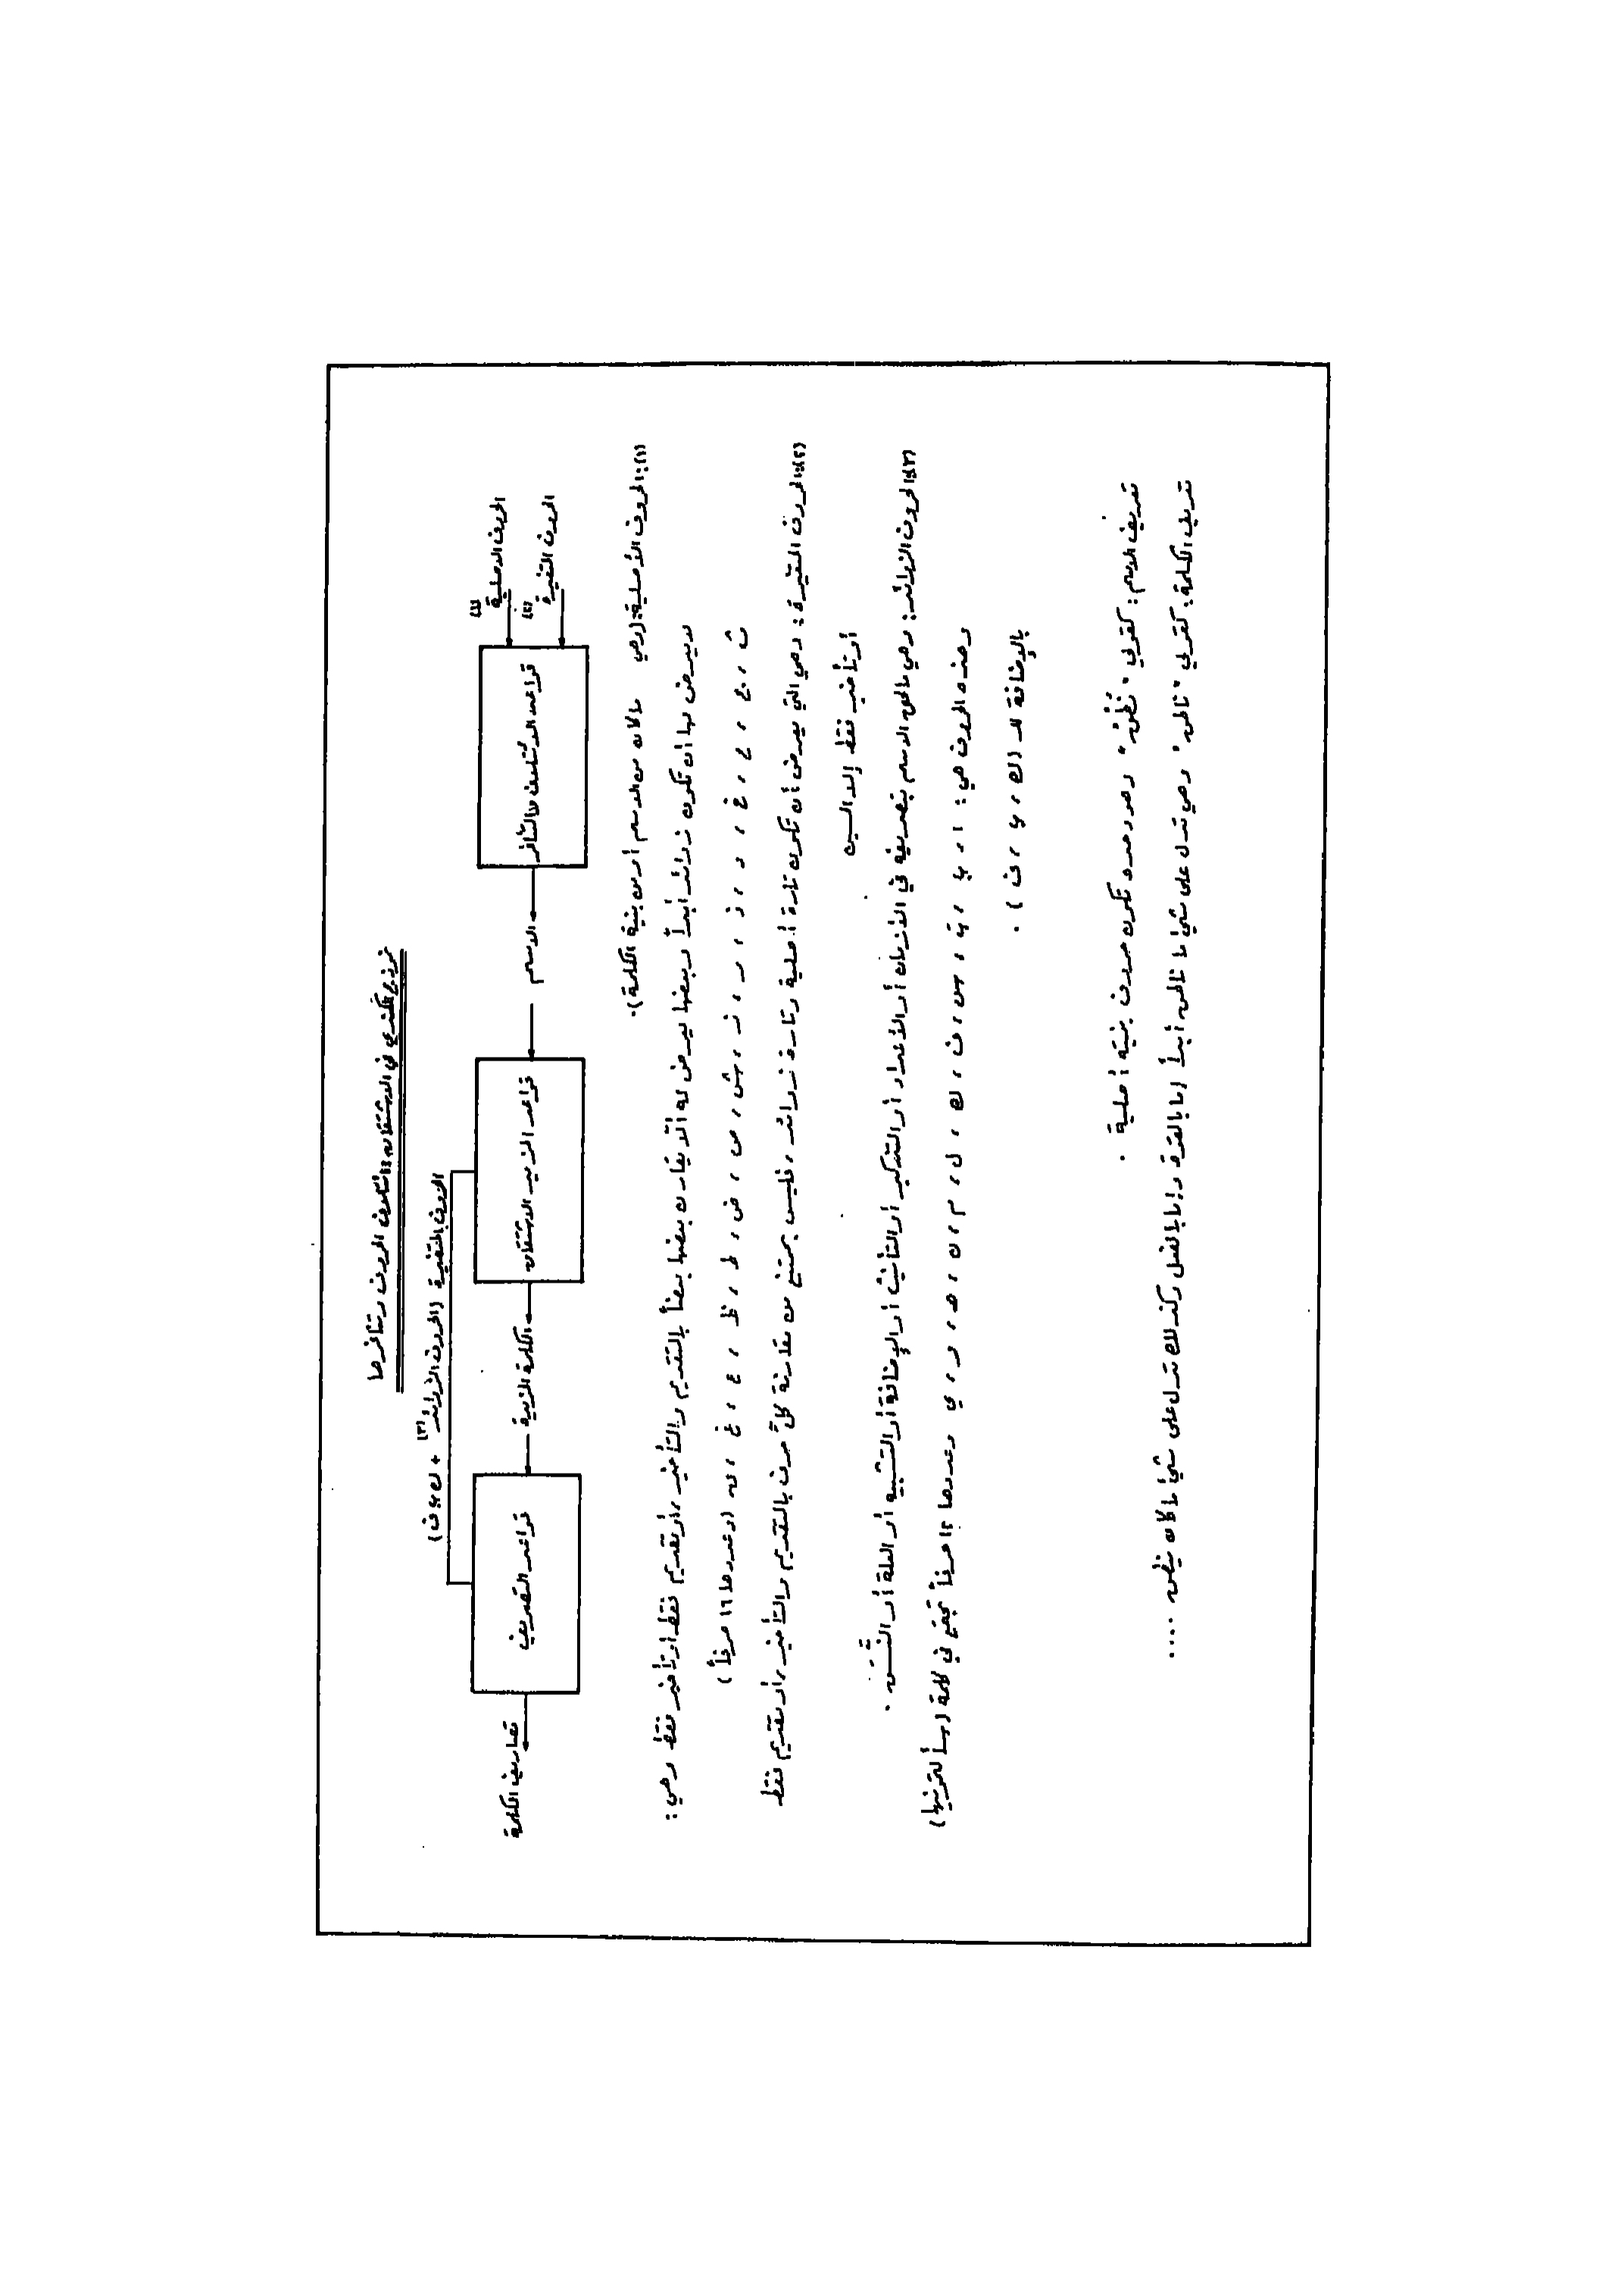 نموذج الكندي في الاشتقاق وائتلاف الحروف وتنافرها
الحروف المتغيرة (الحروف الزوائد (٣) + ك، ب، ف)
(١)
الحروف الاصلية
(٢)
الحروف المتغيرة
قواعد الائتلاف والتنافر
الاسم
قواعد المزيد الاشتقاق
الكلمة المزيدة
قواعد التصريف
تصاريف الكلمة
(١): الحروف الأصلية: (وهي ما كان من الاسم أو من بنية الكلمة).
لا يعرض لها أن تكون زوائد أبداً وبعضها يعرض له ألّا يقارن بعضها بعضاً بالتقديم والتأخير، أو تقديم فقط أو تأخير فقط وهي:
ث ، ج ، ح ، خ ، د ، ذ ، ر ، ز ، ش ، ص ، ض ، ط ، ظ ، ع ، غ ، ق (وعددها ١٦ حرفاً)
(٢): الحروف المتغيرة: وهي التي يعرض أن تكون تارة أصلية وتارة زوائد، فليس بممتنع من مقارنة كلّ حرف بالتقديم والتأخير، أو تقديم فقط
أو تأخير فقط إلا السين
(٣): الحروف الزوائد: وهي ما لحق الاسم بتصريفه في الأزمان أو الأعداد أو التذكير أو التأنيث أو الإضافة أو التشبيه أو العلة أو النسق.
وهذه الحروف هي: ا ، ب ، ت ، س ، ف ، ك ، ل ، م ، ن ، هـ ، و ، ي وعددها ١٢ حرفاً تجتمع في كلمة (سألتمونيها)
بالإضافة لـ (ك ، ب ، ف) .
تعريف الاسم: كقولي "نُطْق" وهو وحده تكون حروف بنيته أصلية .
تعريف الكلمة: كقولي "ناطق" وهي تدل على شيء ما ناطق أبداً إما بالقوة وإما بالفعل وكذلك تدل على شيء ما كان ينطق ....